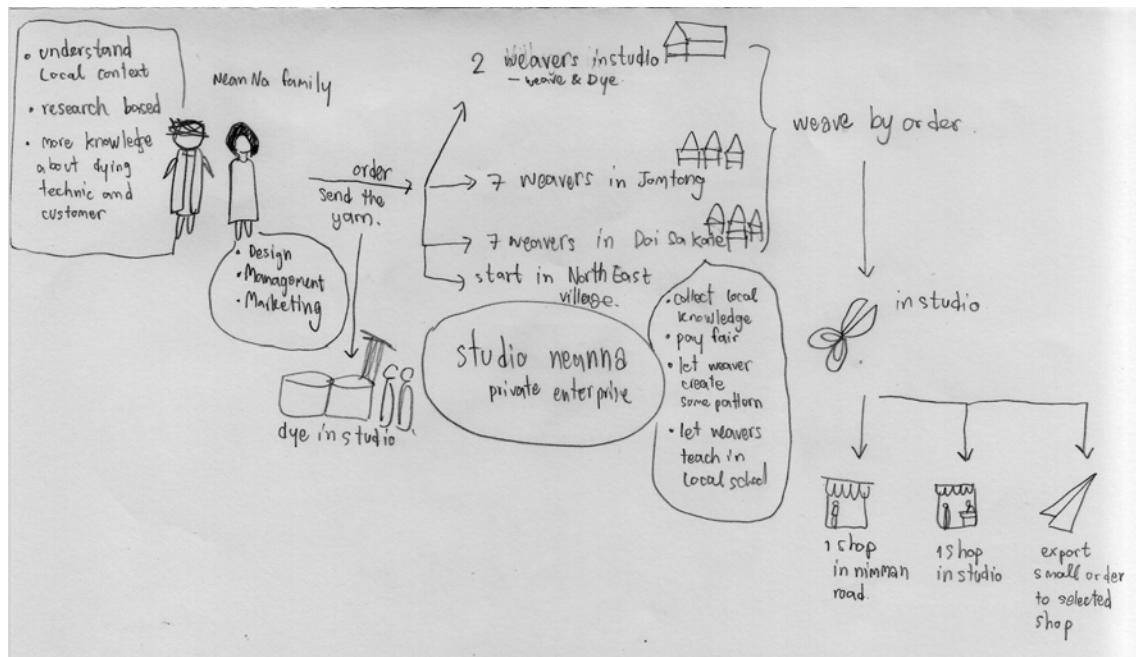 • understand
Local context
• research based
• more knowledge
about dying
technic and
customer
NeanNa family
• Design
• Management
• Marketing
order
send the
yarn.
dye in studio
2 weavers in studio
– weave & Dye.
7 weavers in Jomtong
7 weavers in Doi Sakate
start in North East
village.
studio neanna
private enterprise
• collect local
knowledge
• pay fair
• let weaver
create
some pattern
• let weavers
teach in
local school
weave by order.
in studio
1 shop
in nimman
road.
1 shop
in studio
export
small order
to selected
shop